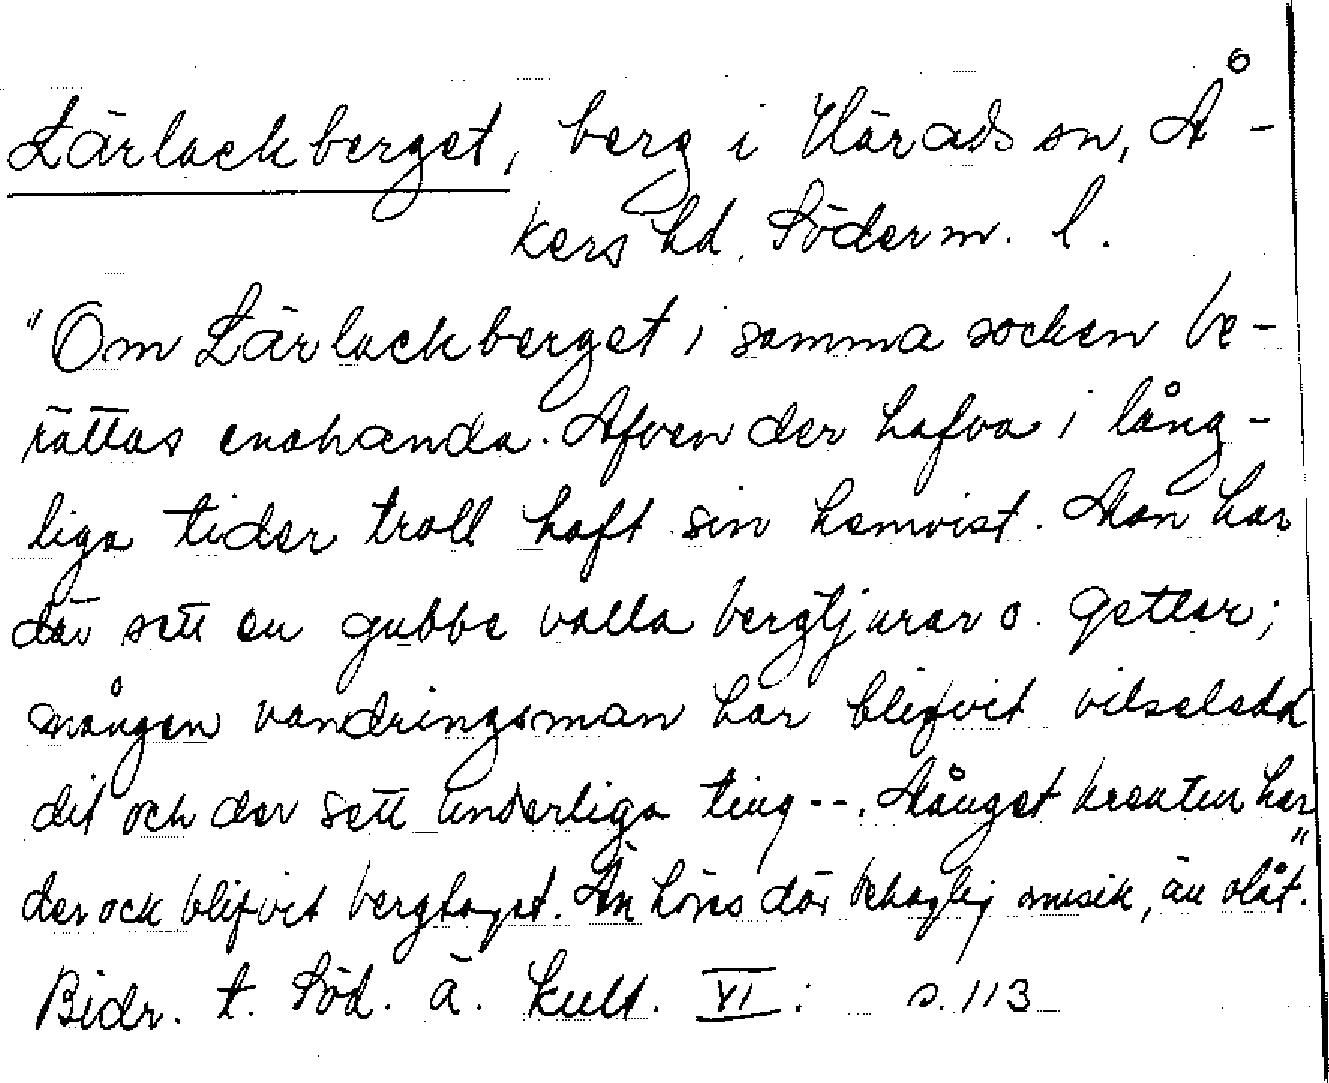 Lärlackberget, berg i Härads sn, Å-
kers hd. Söderm. l.
"Om Lärlackberget i samma socken be-
rättas enahanda. Äfven der hafva i lång-
liga tider troll haft sin hemvist. Man har
där sett en gubbe valla bergtjurar o. getter;
mången vandringsman har blifvit vilseledd
dit och der sett underliga ting --. Månget kreatur har
der ock blifvit bergtaget. Än höres där behaglig musik, än olåt."
Bidr. t. Söd. ä. kult. VI: s. 113